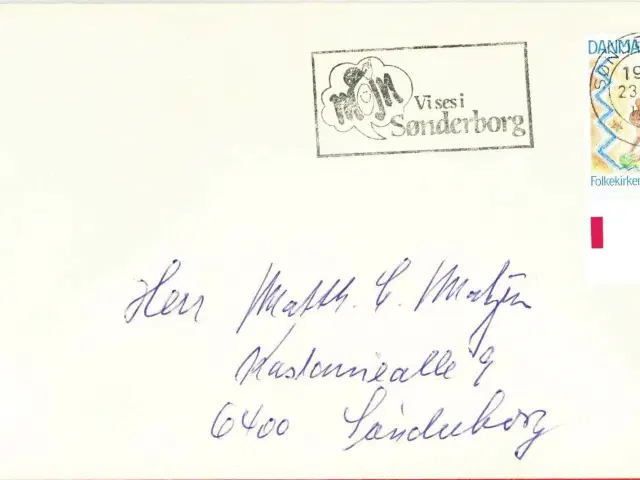 møjn
Vi ses i
Sønderborg
DANMA
SØN
19
23
Folkekirken
Herr Matth. C. Matzen
Kastaniealle 9
6400 Sønderborg